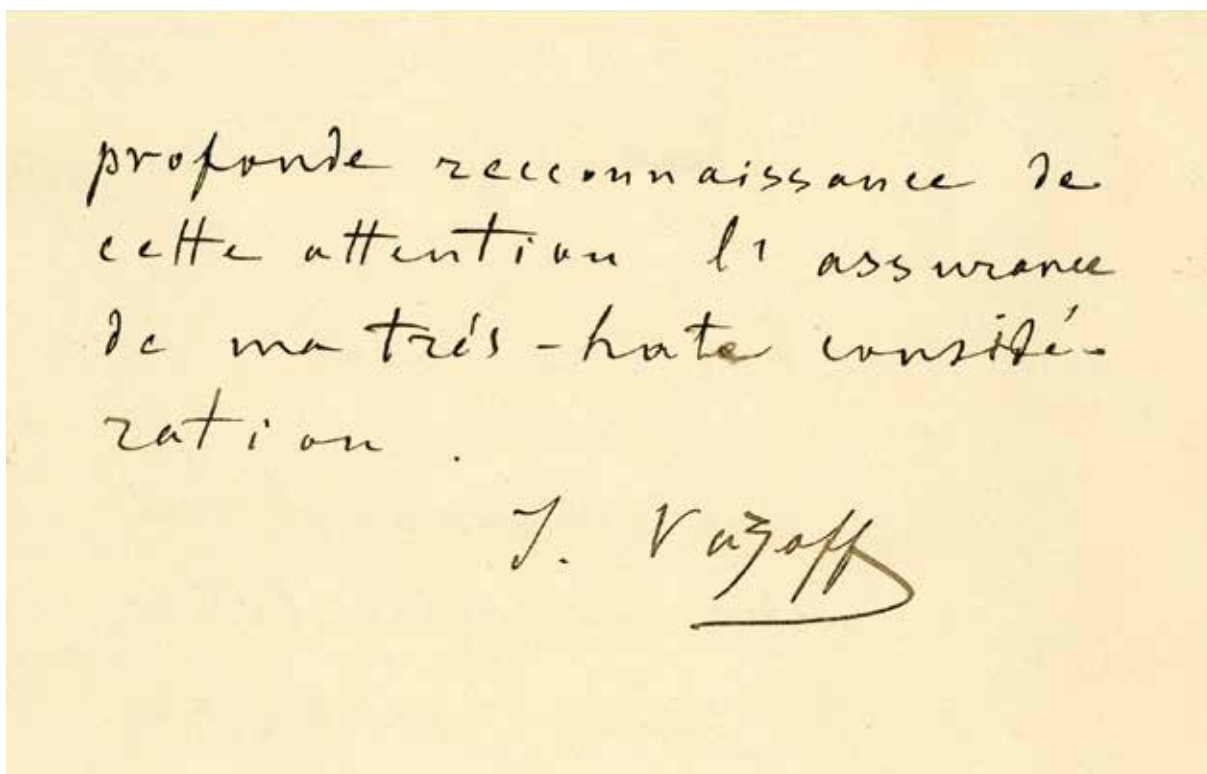 profonde recconnaissance de
cette attention l'assurance
de ma trés-hate considé-
ration.
I. Vazoff